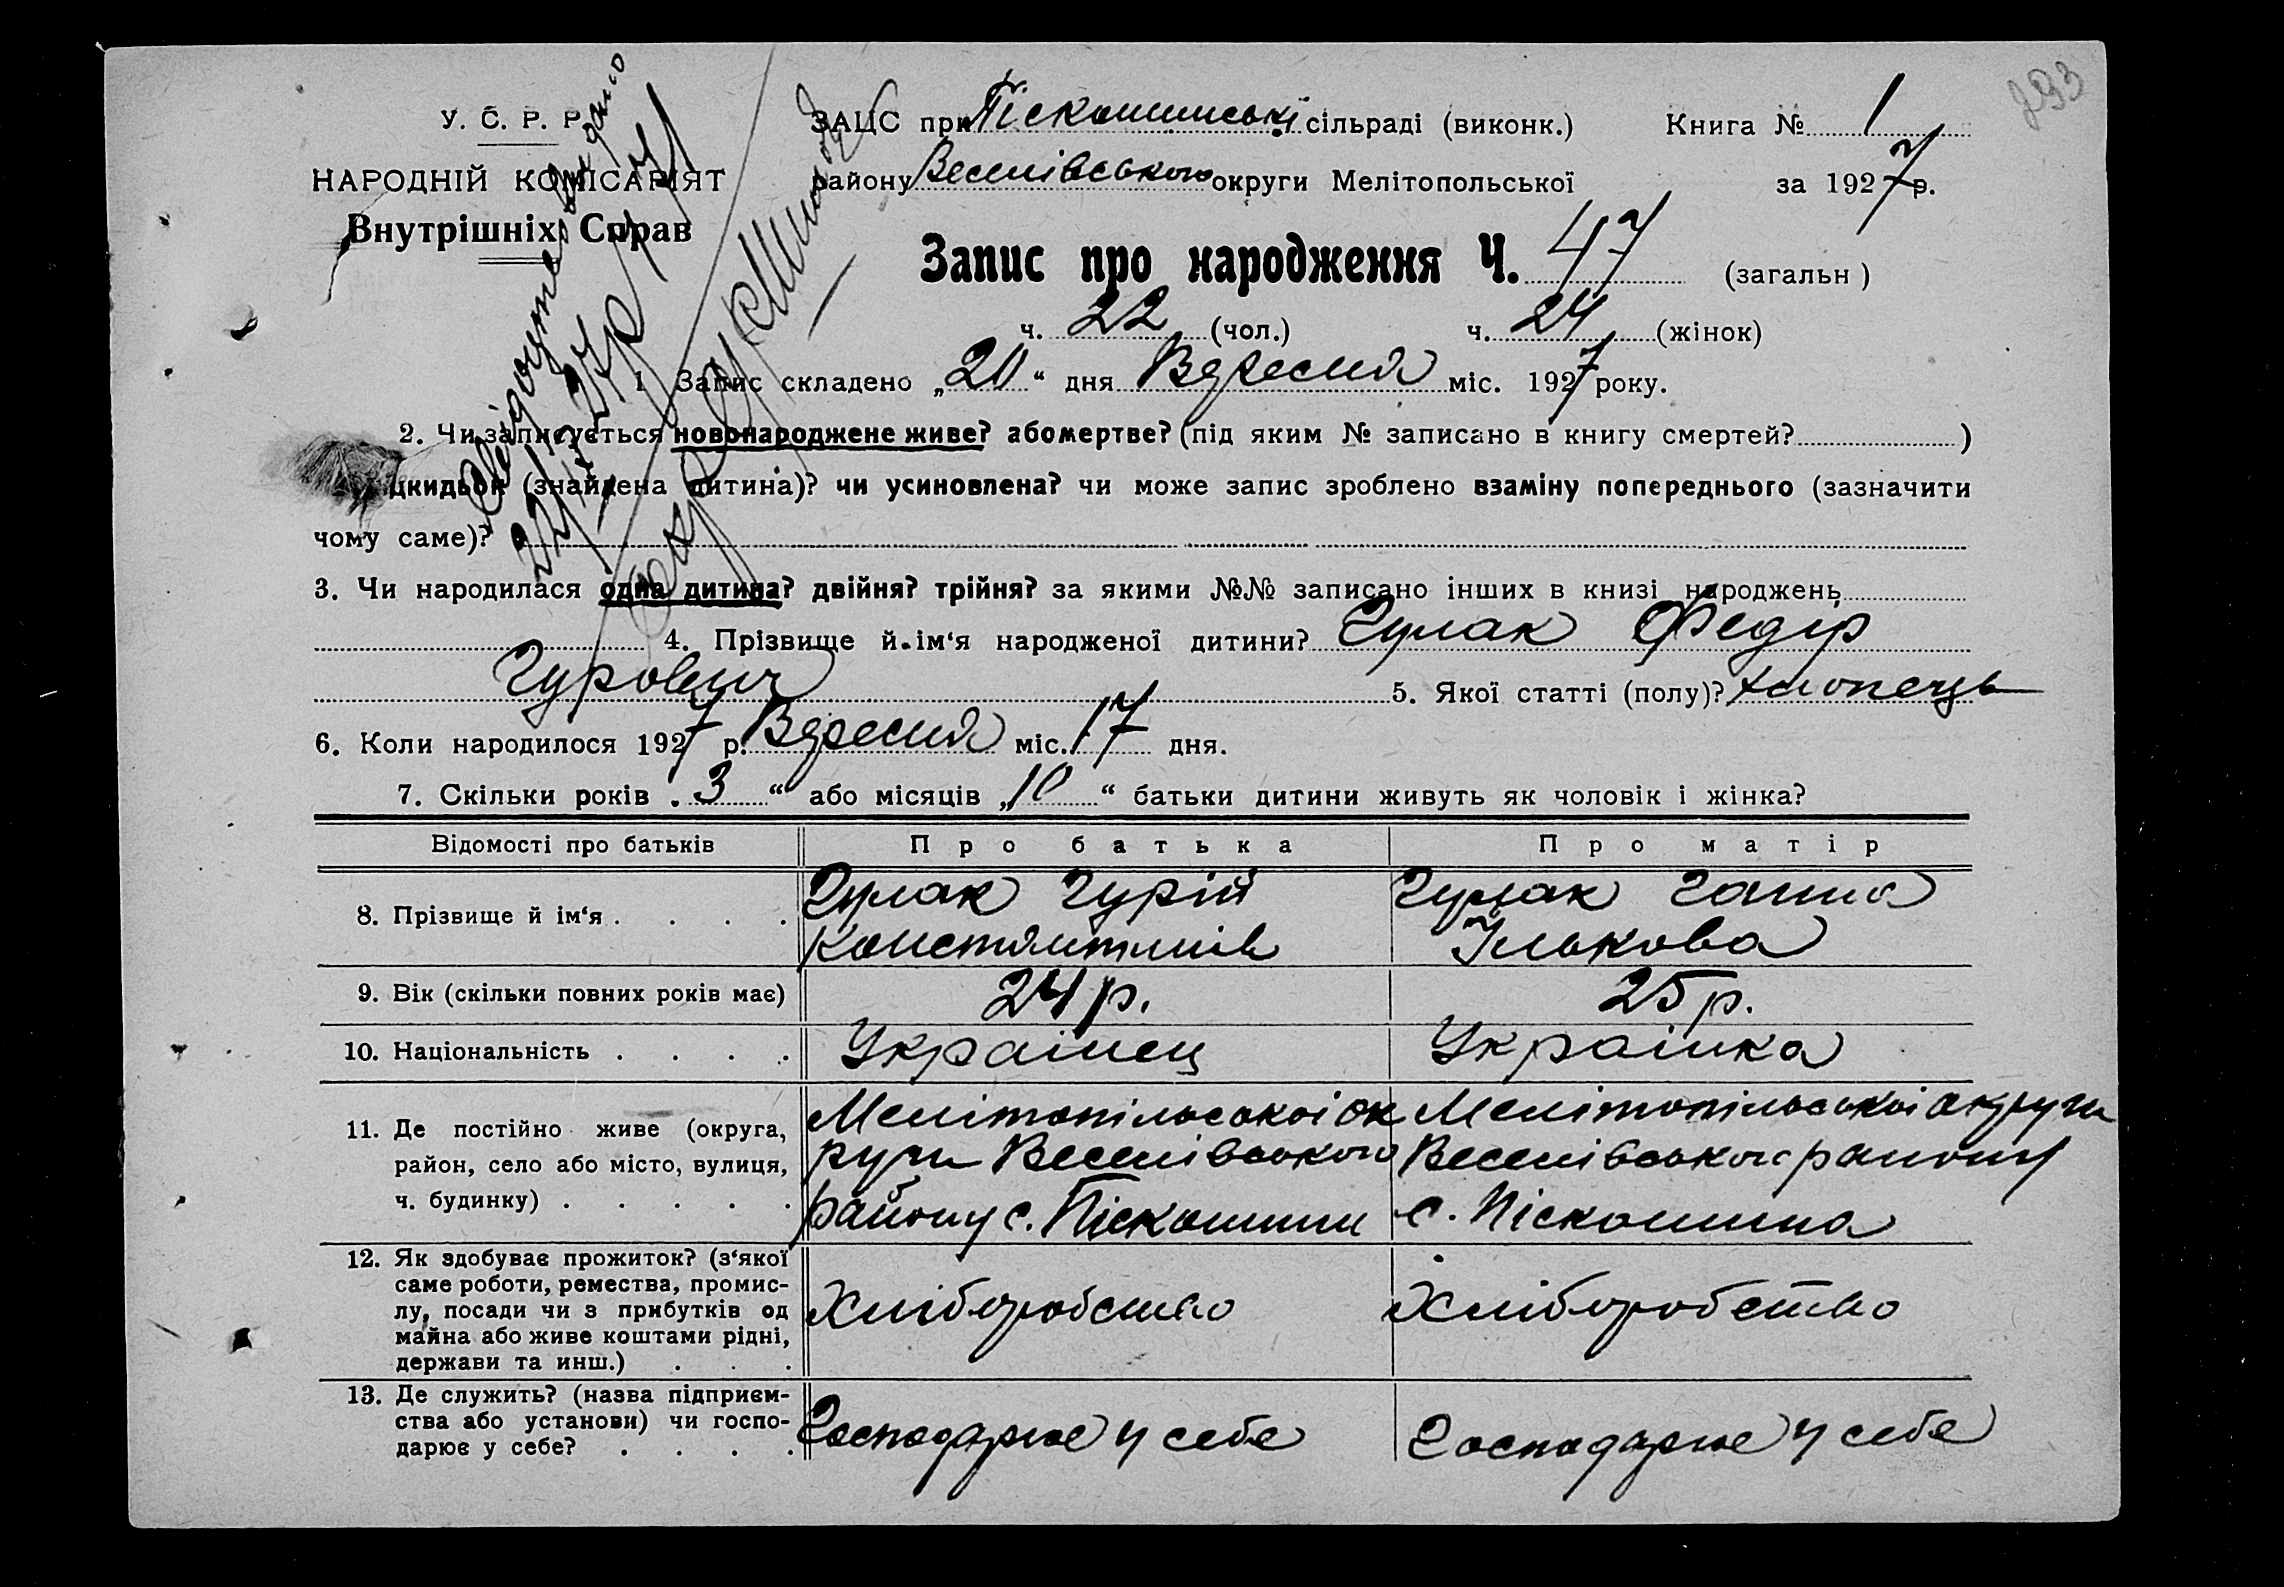 293
У. С. Р. Р.
НАРОДНІЙ КОМІСАРІЯТ
Внутрішніх Справ
ЗАЦС при Піскошинські сільраді (виконк.) Книга № 1
району Веселівського округи Мелітопольської за 1927 р.
Запис про народження Ч. 47 (загальн)
ч. 22 (чол.) ч. 24 (жінок)
1 Запис складено „20“ дня Вересня міс. 1927 року.
2. Чи записується новонароджене живе? або мертве? (під яким № записано в книгу смертей? )
(знайдена дитина)? чи усиновлена? чи може запис зроблено взаміну попереднього (зазначити
чому саме)?
3. Чи народилася одна дитина? двійня? трійня? за якими №№ записано інших в книзі народжень
4. Прізвище й ім‘я народженої дитини? Гулак Федір
Гурович 5. Якої статті (полу)? хлопець
6. Коли народилося 1927 р. Вересня міс. 17 дня.
7. Скільки років „3“ або місяців „10“ батьки дитини живуть як чоловік і жінка?
Відомості про батьків Про батька Про матір
8. Прізвище й ім‘я . . . . Гулак Гурій Гулак Ганна
Константинів Ількова
9. Вік (скільки повних років має) 24 р. 25 р.
10. Національність . . . . Українец Українка
11. Де постійно живе (округа, Мелітопільської ок Мелітопільської округи
район, село або місто, вулиця, руги Веселівського Веселівського району
ч. будинку) . . . . . району с. Піскошини с. Піскошина
12. Як здобуває прожиток? (з‘якої
саме роботи, ремества, промис-
лу, посади чи з прибутків од Хліборобство Хліборобство
майна або живе коштами рідні,
держави та инш.) . . .
13. Де служить? (назва підприєм-
ства або установи) чи госпо- Господарює у себе Господарює у себе
дарює у себе? . . . .
Свідоцтво видано